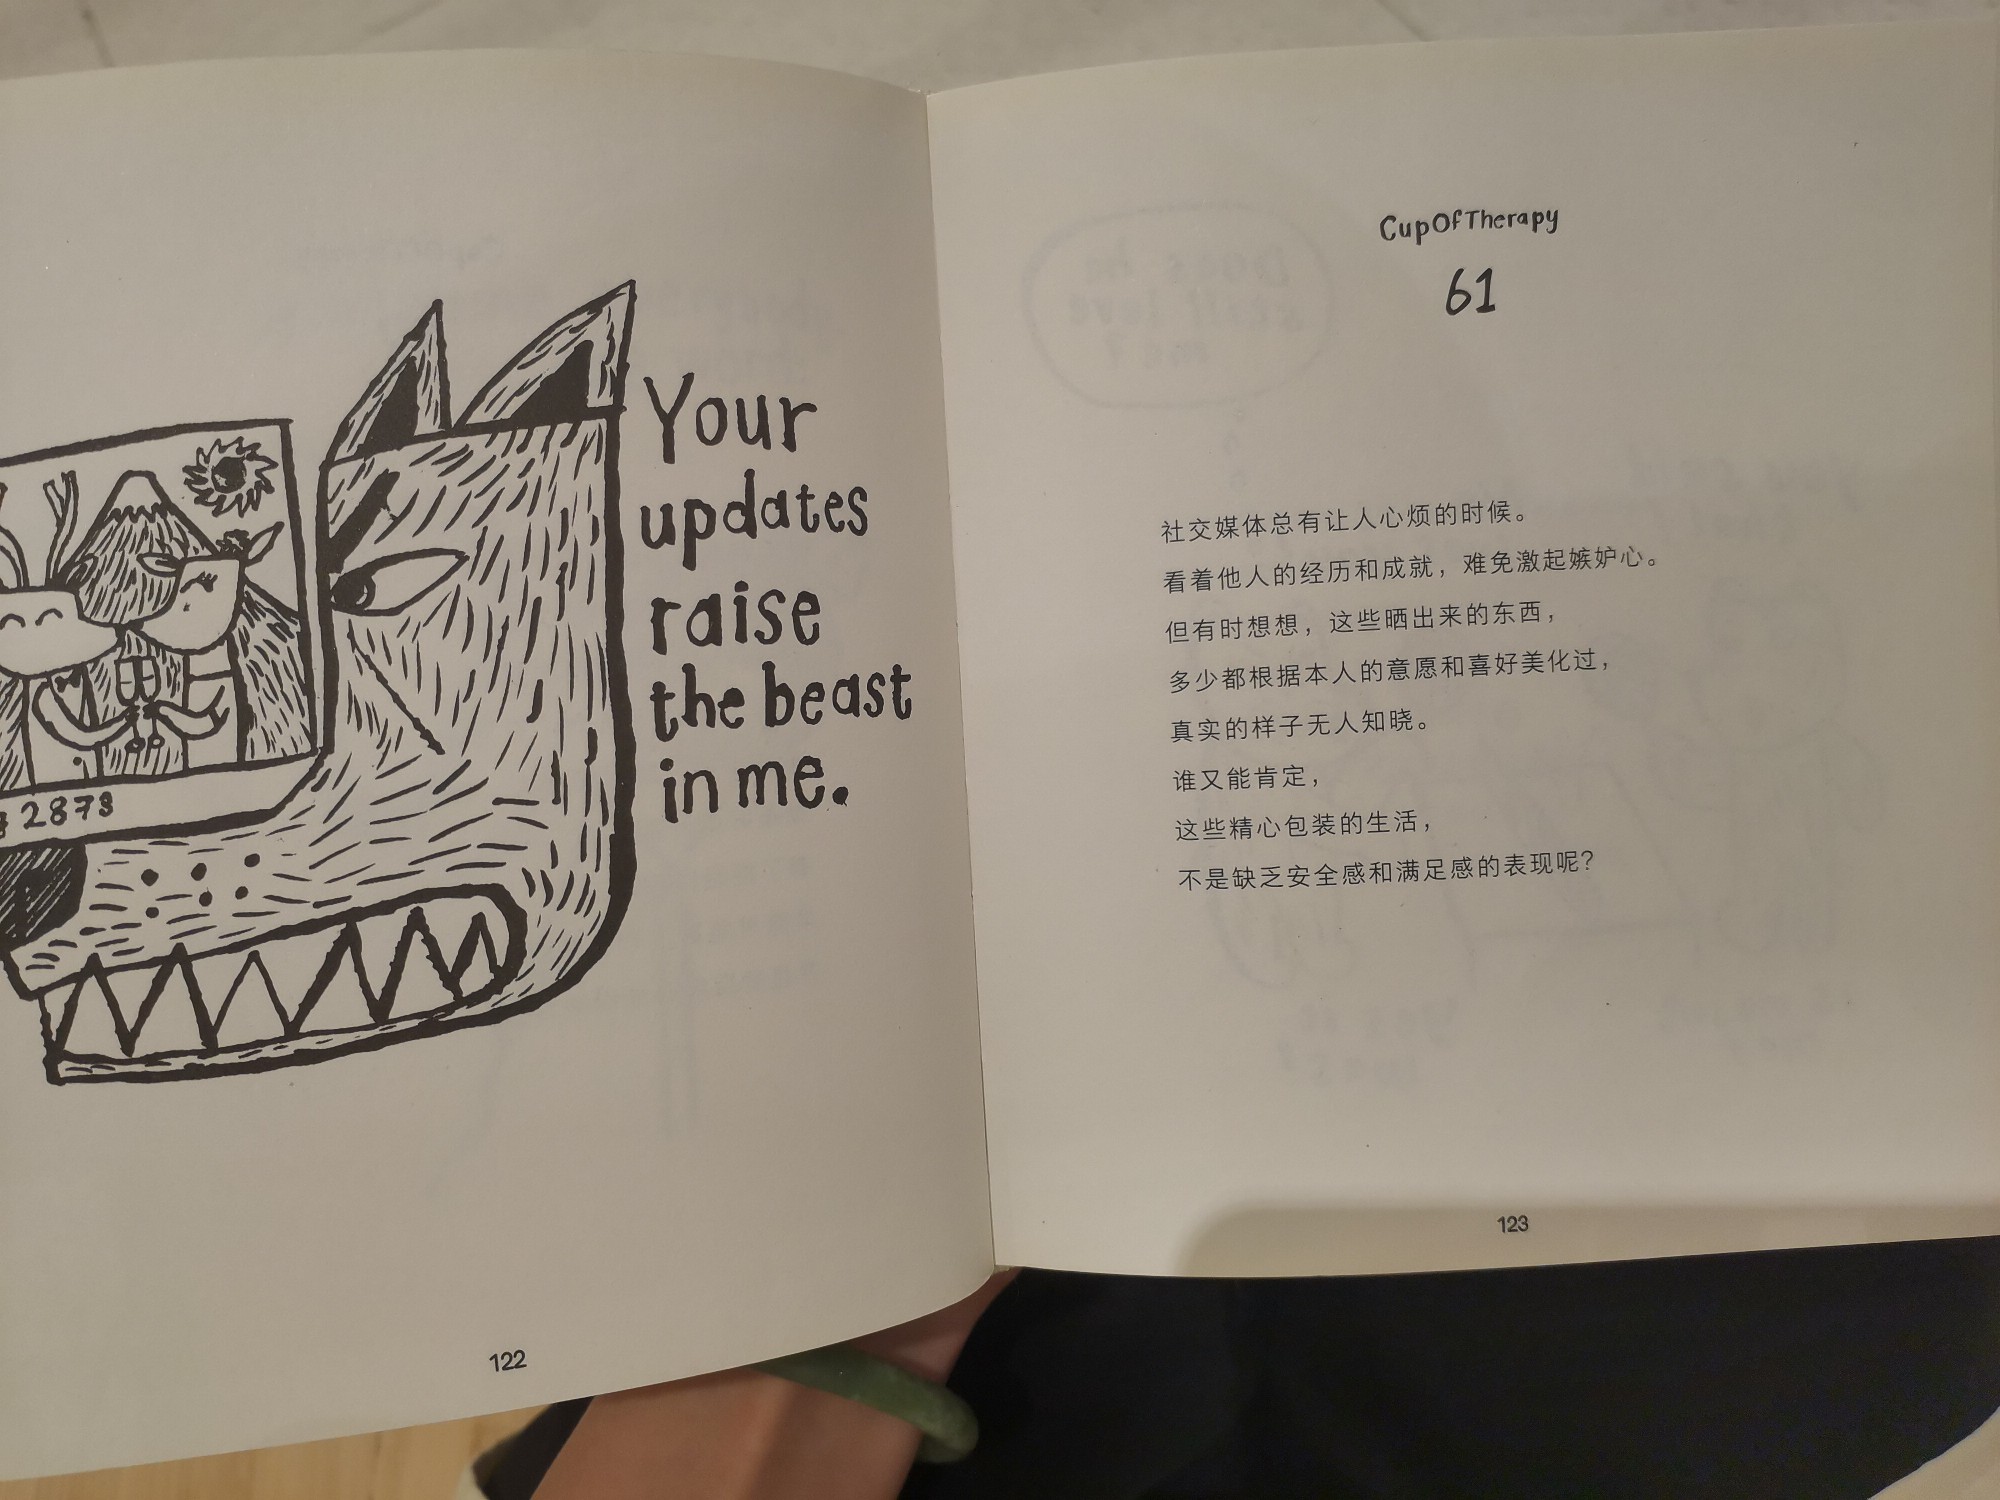 Your
updates
raise
the beast
in me.
2873
122
CupOfTherapy
61
社交媒体总有让人心烦的时候。
看着他人的经历和成就，难免激起嫉妒心。
但有时想想，这些晒出来的东西，
多少都根据本人的意愿和喜好美化过，
真实的样子无人知晓。
谁又能肯定，
这些精心包装的生活，
不是缺乏安全感和满足感的表现呢？
123